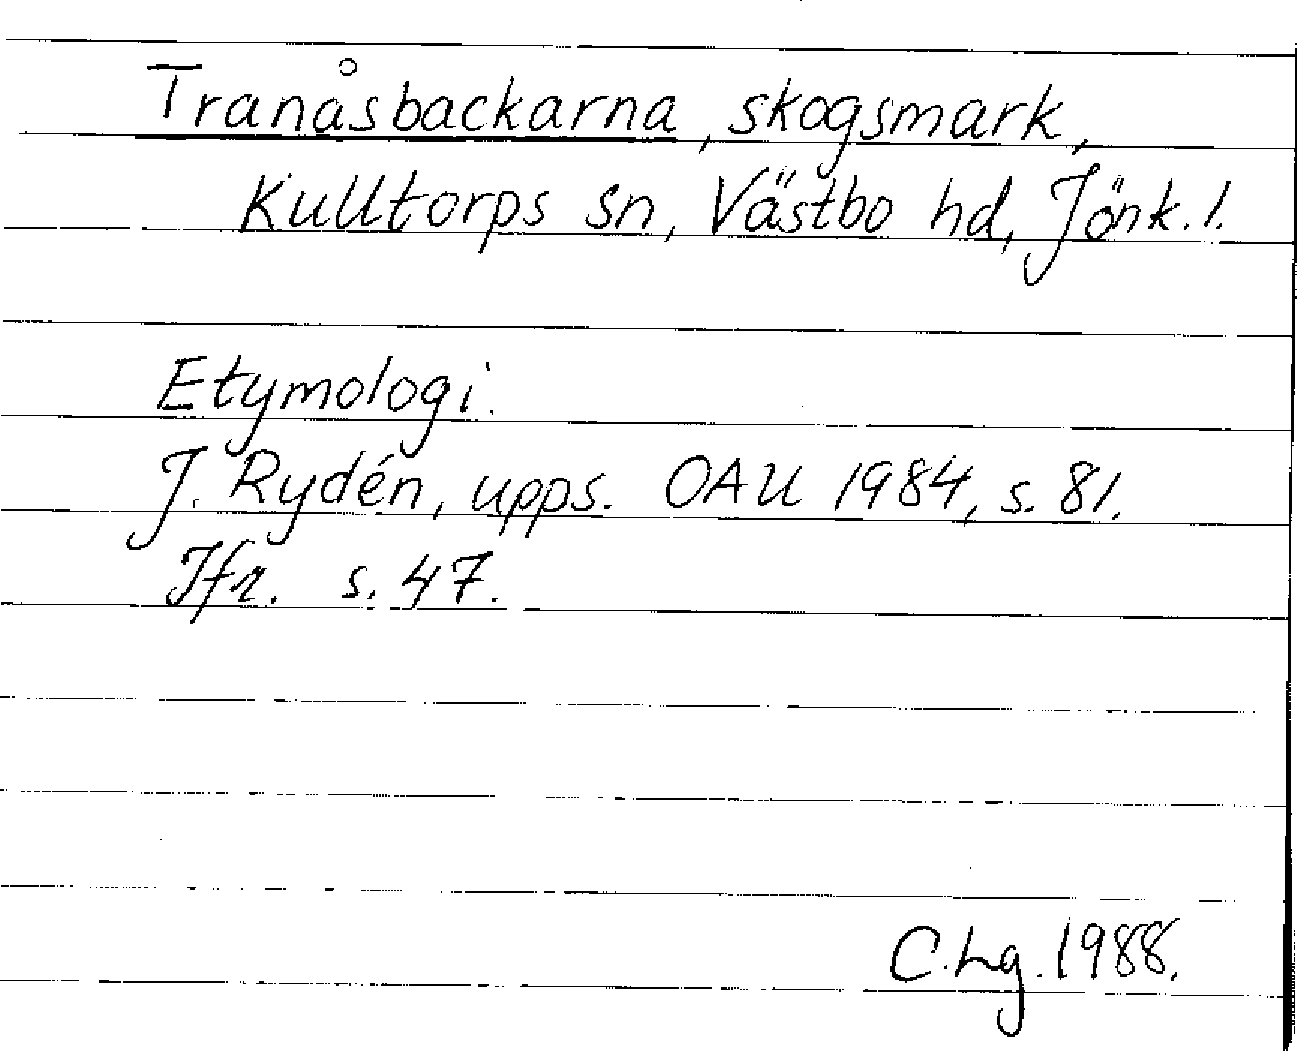 Tranåsbackarna, skogsmark,
Kulltorps sn, Västbo hd, Jönk. l.
Etymologi.
J. Rydén, upps. OAU 1984, s. 81.
Jfr. s. 47.
C. Lg. 1988.